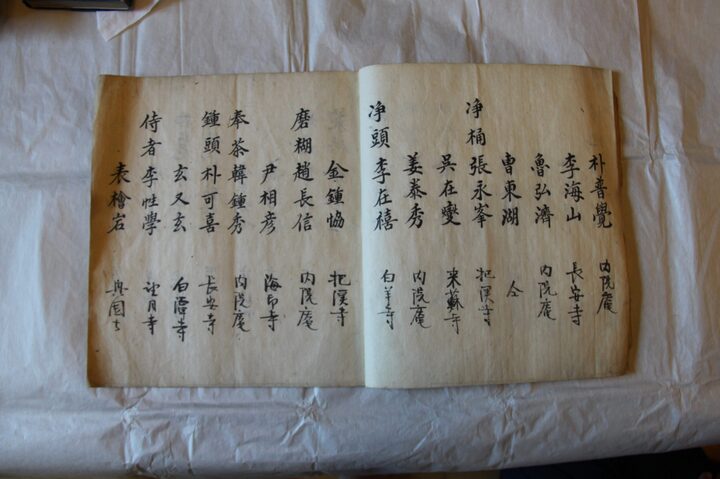 朴普覺 內院庵
李海山 長安寺
魯弘濟 內院庵
曹東湖 仝
淨桶 張永峯 把溪寺
吳在燮 來蘇寺
姜泰秀 內院庵
淨頭 李在禧 白羊寺
金鍾協 把溪寺
磨糊 趙長信 內院庵
尹相彦 海印寺
奉茶 韓鍾秀 內院庵
鍾頭 朴可喜 長安寺
玄又玄 白潭寺
侍者 李性學 望月寺
表檜岩 興國寺